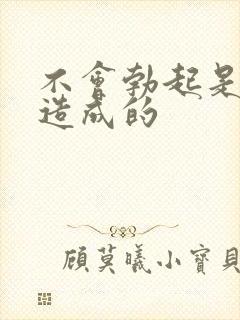 不會勃起是
造成的
顧莫曦小寶貝